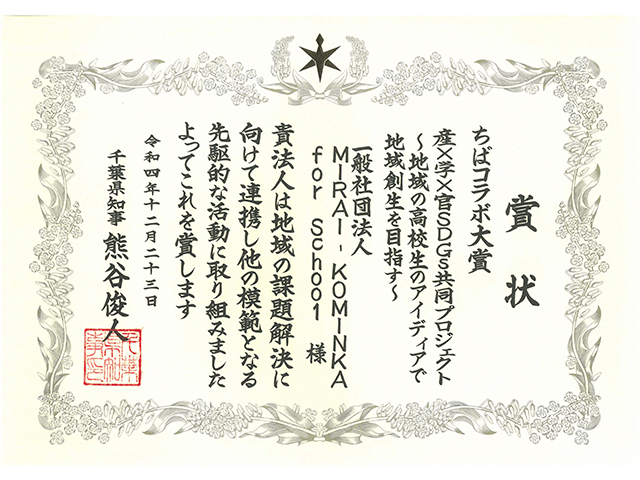 賞状
ちばコラボ大賞
産×学×官SDGs共同プロジェクト
～地域の高校生のアイディアで
地域創生を目指す～
一般社団法人
MIRAI-KOMINKA
for School 様
貴法人は地域の課題解決に
向けて連携し他の模範となる
先駆的な活動に取り組みました
よってこれを賞します
令和四年十二月二十三日
千葉県知事 熊谷俊人